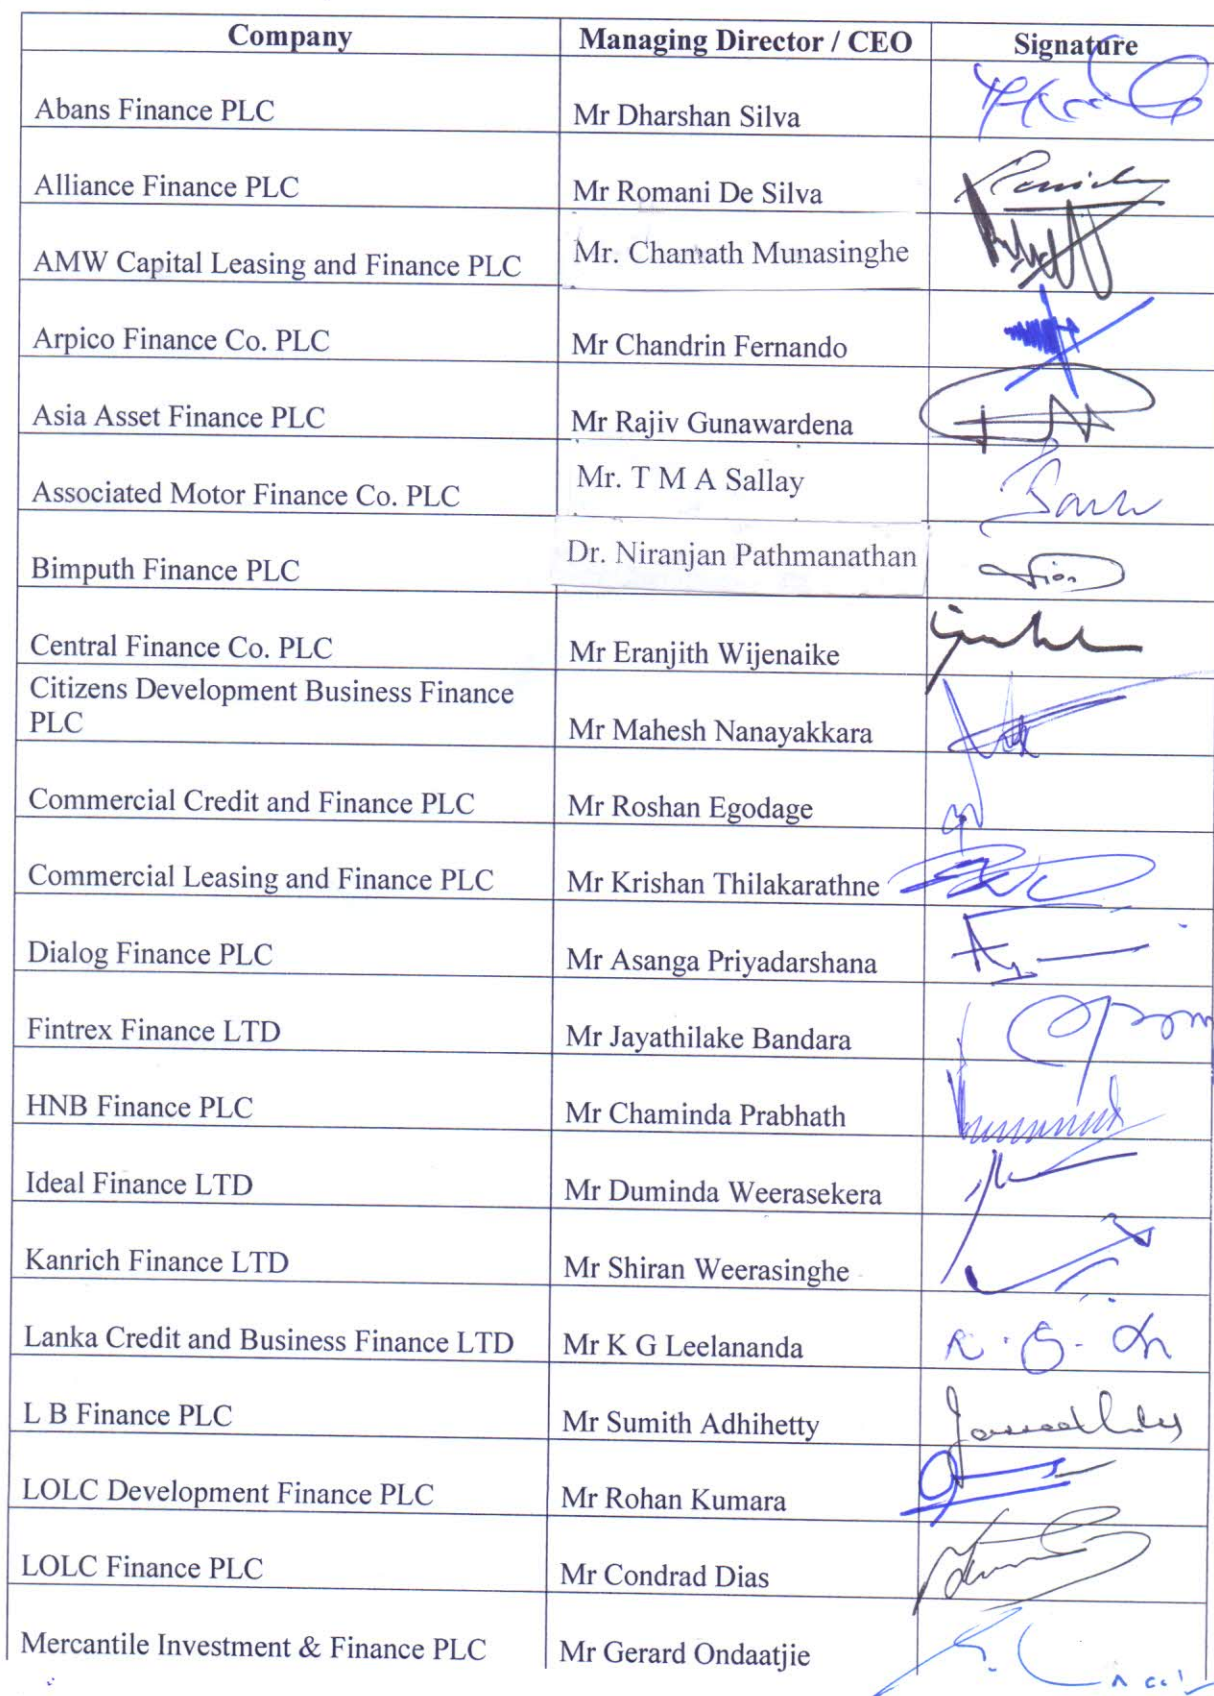 Company Managing Director / CEO Signature
Abans Finance PLC Mr Dharshan Silva
Alliance Finance PLC Mr Romani De Silva
AMW Capital Leasing and Finance PLC Mr. Chamath Munasinghe
Arpico Finance Co. PLC Mr Chandrin Fernando
Asia Asset Finance PLC Mr Rajiv Gunawardena
Associated Motor Finance Co. PLC Mr. T M A Sallay
Bimputh Finance PLC Dr. Niranjan Pathmanathan
Central Finance Co. PLC Mr Eranjith Wijenaike
Citizens Development Business Finance
PLC Mr Mahesh Nanayakkara
Commercial Credit and Finance PLC Mr Roshan Egodage
Commercial Leasing and Finance PLC Mr Krishan Thilakarathne
Dialog Finance PLC Mr Asanga Priyadarshana
Fintrex Finance LTD Mr Jayathilake Bandara
HNB Finance PLC Mr Chaminda Prabhath
Ideal Finance LTD Mr Duminda Weerasekera
Kanrich Finance LTD Mr Shiran Weerasinghe
Lanka Credit and Business Finance LTD Mr K G Leelananda
L B Finance PLC Mr Sumith Adhihetty
LOLC Development Finance PLC Mr Rohan Kumara
LOLC Finance PLC Mr Condrad Dias
Mercantile Investment & Finance PLC Mr Gerard Ondaatjie